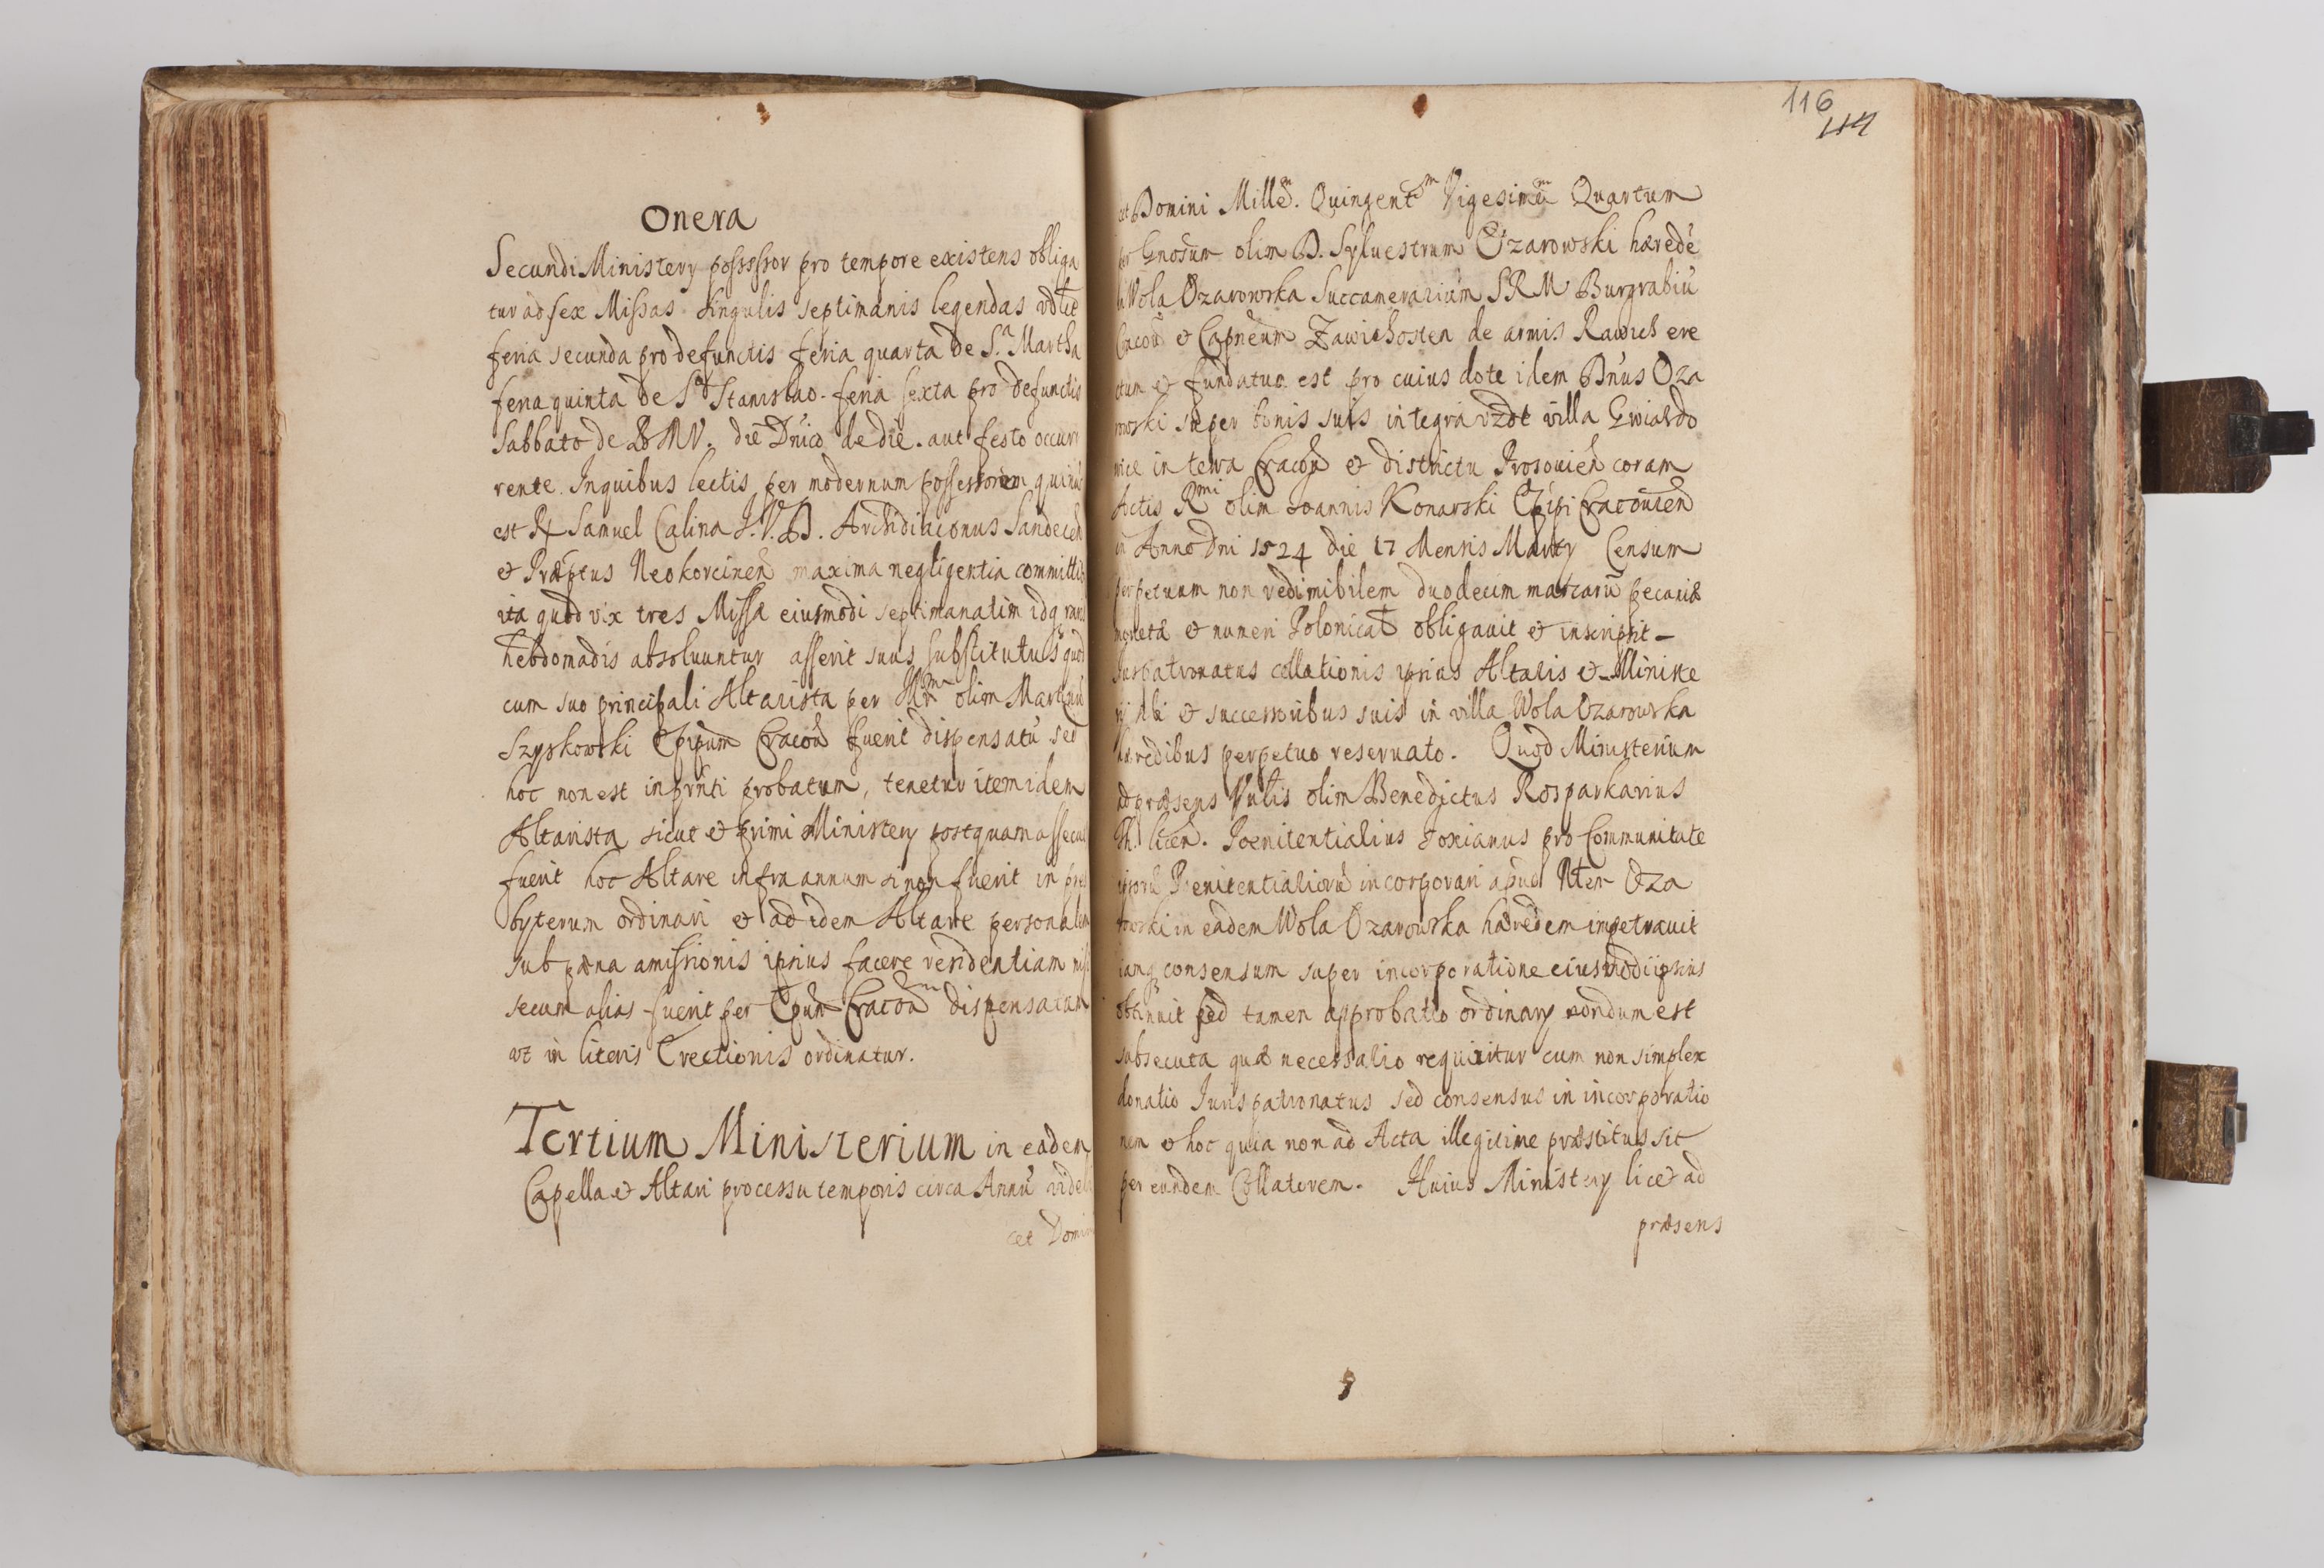 Onera
Secundi Ministery possessor pro tempore existens obliga
tur ad sex Missas singulis septimanis legendas vdlit
feria secunda pro defunctis feria quarta de S. Martha
feria quinta de Sto Stanislao. feria sexta pro defunctis
Sabbato de B M V. die Dnico de die. aut festo occur
rente. In quibus lectis per modernum possessorem qui
est R Samuel Calina J. V. D. Archidiaconus Sandecen
et Præptus Neokorcinen maxima negligentia committi
ita quod vix tres Missæ eiusmodi septimanatim idq raris
hebdomadis absoluuntur asserit suus substitutus quod
cum suo principali Altarista per olim Martinu
Szyskowski Epipum Cracou fuerit dispensatu sed
hoc non est in prnti probatum, tenetur item idem
Altarista sicut et primi Ministery postquam assecu
fuerit hoc Altare infra annum si non fuerit in pres
byterum ordinari et ad idem Altare personalem
sub pæna amissionis ipsius facere residentiam nisi
secum alias fuerit per Epum Cracou dispensatum
vt in literis Erectionis ordinatur.
Tertium Ministerium in eadem
Capella et Altari processu temporis circa Annu videli
cet Domini
116
114
cet Domini Millem. Quingentm Vigesimu Quartum
per Gnosum olim D. Syluestrum Ozarowski hærede
in Wola Ozarowska Succamerarium S R M Burgrabiu
Cracou et Capneum Zawichosten de armis Rawich ere
ctum et fundatum est pro cuius dote idem Dnus Oza
rowski super bonis suis integra vzdt villa Gwiazdo
wice in terra Cracou et districtu Prosouien coram
Actis Rmi olim Joannis Konarski Epipi Cracouien
in Anno Dni 1524 die 17 Mensis Marty Censum
perpetuum non redimibilem duodecim marcaru pecuniæ
monetæ et numeri Polonicat obligauit et inscripsit -
Jurepatronatus collationis ipsius Altaris et Ministe
rij sibi et successoribus suis in villa Wola Ozarowska
hæredibus perpetuo reseruato. Quod Ministerium
ad præsens Vulis olim Benedictus Rosparkarius
Th. licen. Poenitentialius Foxianus pro Communitate
ipsoru Poenitentialioru incorporari apud Oza
rowski in eadem Wola Ozarowska hæredem impetrauit
iamq consensum super incorporatione eiusmodi ipsius
obtinuit sed tamen approbatio ordinary nondum est
subsecuta quæ necessario requiritur cum non simplex
donatio Jurispatronatus sed consensus in incorporatio
nem et hoc quia non ad Acta illegitime præstitus sit
per eundem Collatorem. Huius Ministery licet ad
præsens